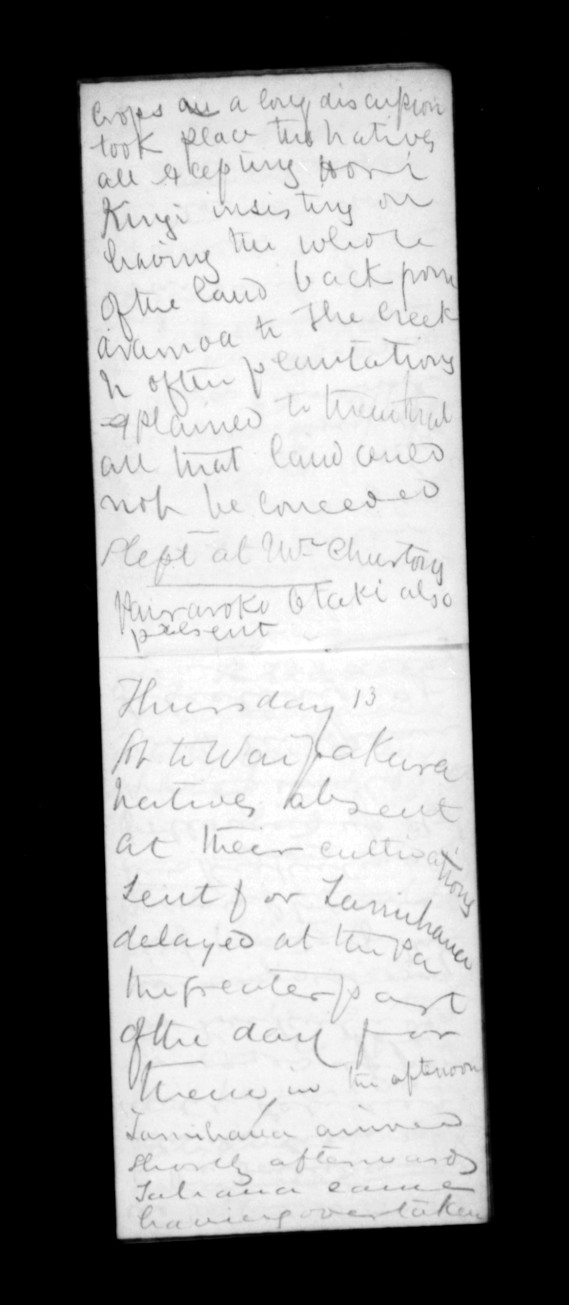 crops as a long discussion
took place the natives
all excepting Honi
Kingi insisting on
having the whole
of the land back from
aramoa to the creek
h often plantations
explained to them that
all that land could
not be conceded
Slept at Mr Churtons
Otaki also
present
Thursday 13
to Waipakura
natives absent
at their cultivations
Sent for Tamihana
delayed at the Pa
the greater part
of the day for
them, in the afternoon
Tamihana arrived
shortly afterwards
Tahana came
having overtaken